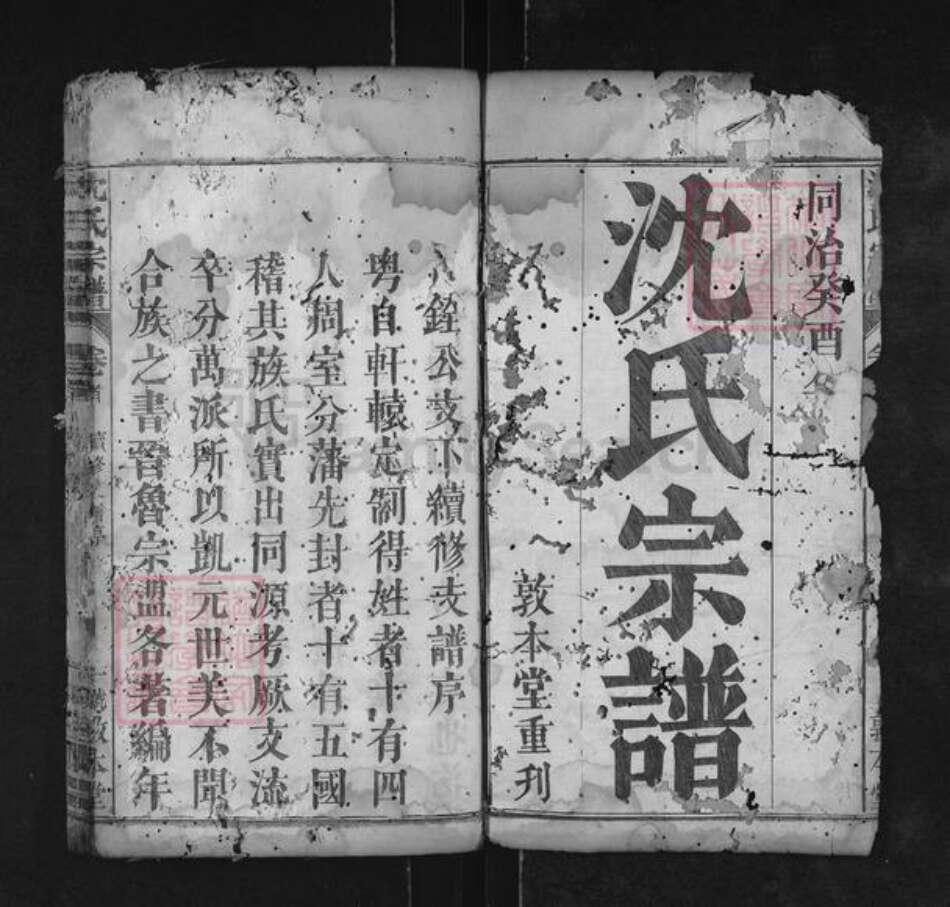 同治癸酉
沈氏宗譜
敦本堂重刊
銓公支下續修支譜序
粵自軒轅定制得姓者十有四
人周室分藩先封者十有五國
稽其族氏實出同源考厥支流
卒分萬派所以凱元世美不聞
合族之書晉魯宗盟各著編年
沈氏宗譜
卷首
續修
敦本堂